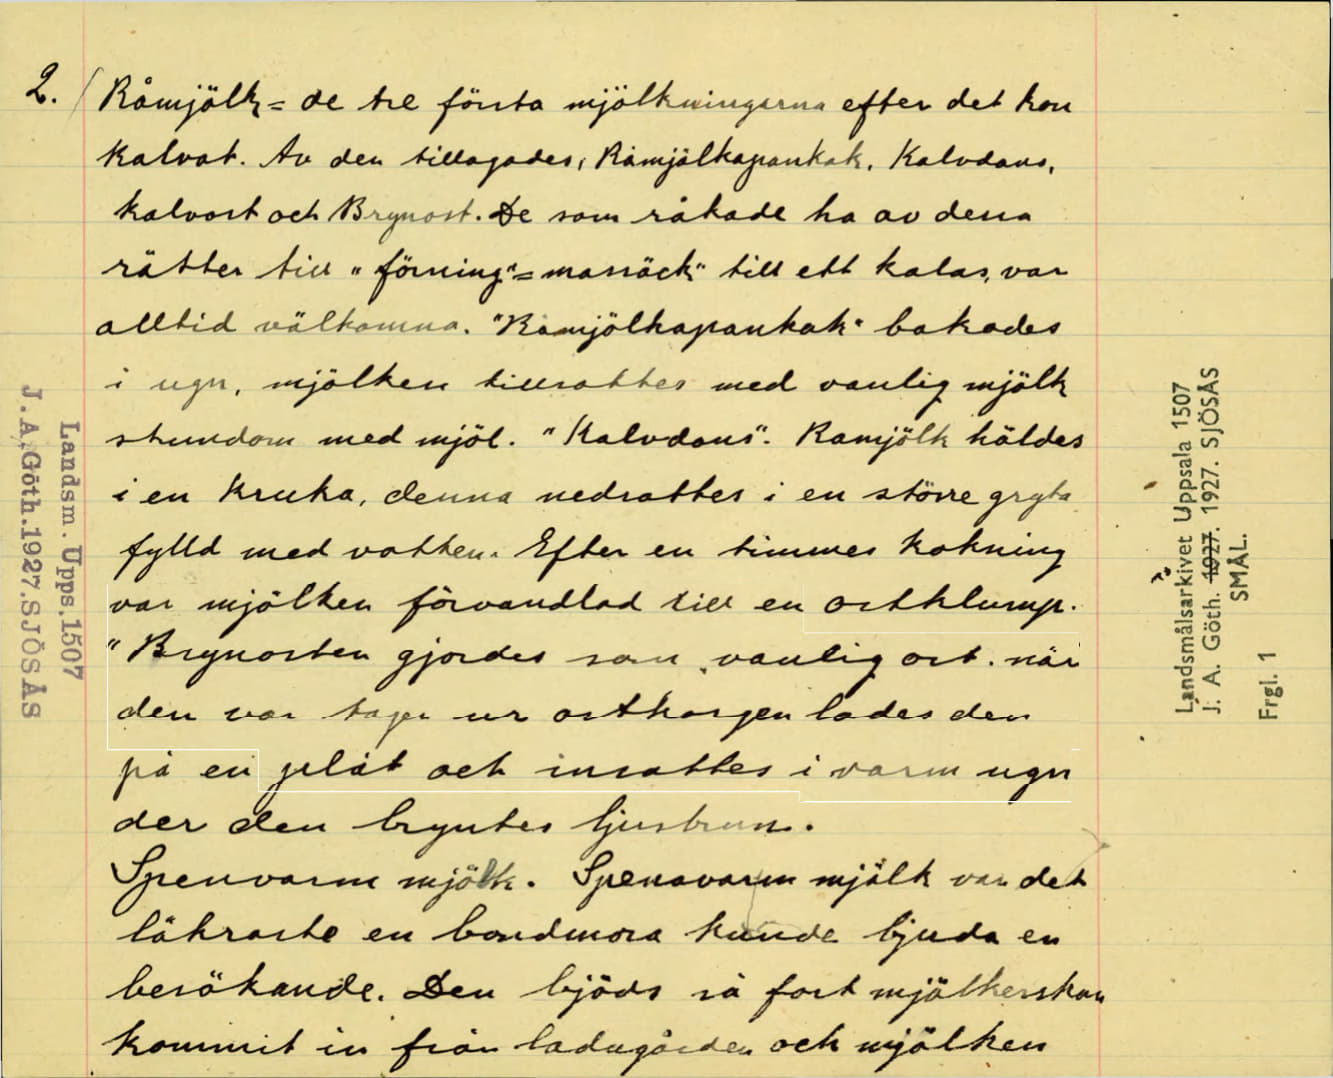 2. Råmjölk = de tre första mjölkningarna efter det kon
kalvat. Av den tillagades, Råmjölkapankak, Kalvdans,
kalvost och Brynost. De som råkade ha av dessa
rätter till "förning" = massäck" till ett kalas, var
alltid välkomna. "Råmjölkapankak" bakades
i ugn, mjölken tillsattes med vanlig mjölk
stundom med mjöl. "Kalvdans". Ramjölk häldes
i en kruka, denna nedsattes i en större gryta
fylld med vatten. Efter en timmes kokning
var mjölken förvandlad till en ostklump.
"Brynosten gjordes som vanlig ost. när
den var tagen ur ostkorgen lades den
på en plåt och insattes i varm ugn
der den bryntes ljusbrun.
Spenvarm mjölk. Spenavarm mjölk var det
läkraste en bondmora kunde bjuda en
besökande. Den bjöds så fort mjölkerskan
kommit in från ladugården och mjölken
Landsm. Upps. 1507
J. A. Göth. 1927. SJÖSÅS
Landsmålsarkivet Uppsala 1507
J. A. Göth. 1927. 1927. SJÖSÅS
SMÅL.
Frgl. 1